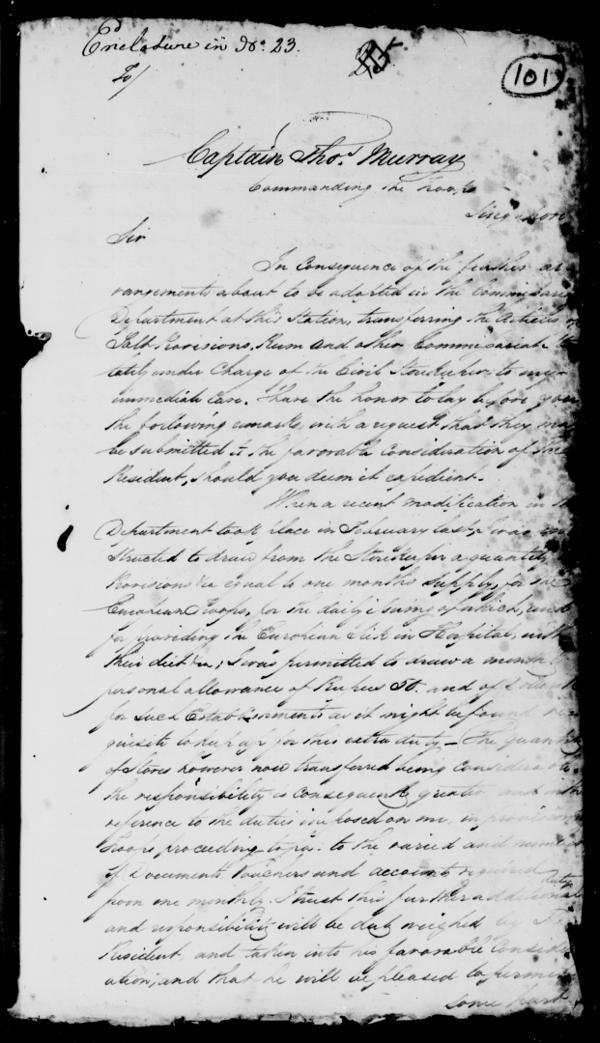 Enclosure in No. 23.
101
To/
Captain Thos. Murray
Commanding the Troops
Singapore
Sir
In Consequence of the further ar
rangements about to be adopted in the Commissariat
Department at this Station, transferring the Articles of
Salt Provisions, Rum and other Commissariat
under Charge of the Civil Storekeeper, to my
immediate Care. I have the honor to lay before you
the following remarks, with a request that they may
be submitted to the favorable Consideration of the
Resident, should you deem it expedient.
When a recent modification in the
Department took place in February last, I was in
structed to draw from the Storekeeper a quantity
Provisions &c equal to one months supply, for the
European Troops, for the daily issuing of which, and
for providing the European Sick in Hospital, with
their diet &c; I was permitted to draw a month
personal allowance of Rupees 50. and of
for such Establishments as it might be found re
quisite to keep up for this extra duty – The quantity
of Stores however now transferred being considerable
the responsibility is consequently greater and with
reference to the duties imposed on me, in provisioning
Troops proceeding to &ca: to the varied and
of Documents Vouchers and accounts required
from me monthly. I trust this further additional duty
and responsibility will be duly weighed by the
Resident, and taken into his favorable Consider
ation, and that he will be pleased to permit
some part